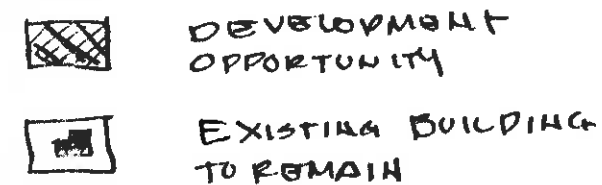 DEVELOPMENT
OPPORTUNITY
EXISTING BUILDING
TO REMAIN